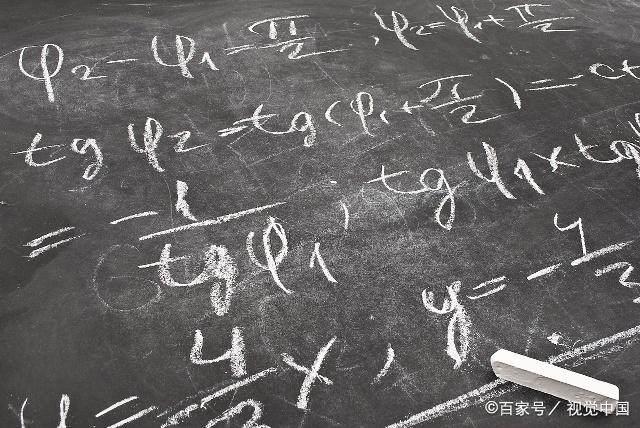 φ₂ - φ₁ = π/2, φ₂ = φ₁ + π/2
tg φ₂ = tg (φ₁ + π/2) = - ct
= - 1/tg φ₁, tg φ₁ × tg
y = - 4/3
y = 4/3 x,
©百家号/视觉中国